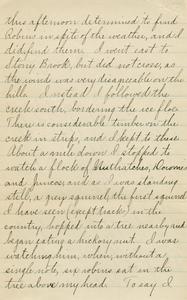 this afternoon determined to find
Robins in spite of the weather, and I
did find them. I went east to
Stony Brook, but did not cross, as
the wind was very disagreeable on the
hills. Instead I followed the
creek south, bordering the ice floe.
There is considerable timber on the
creek in strips, and I kept to these.
About a mile down I stopped to
watch a flock of Nuthatches,
and Juncos, and as I was standing
still, a grey squirrel, the first squirrel
I have seen (except tracks) in the
country, hopped into a tree nearby and
began eating a hickory nut. I was
watching him, when, without a
single note, six robins sat in the
tree above my head. To say I